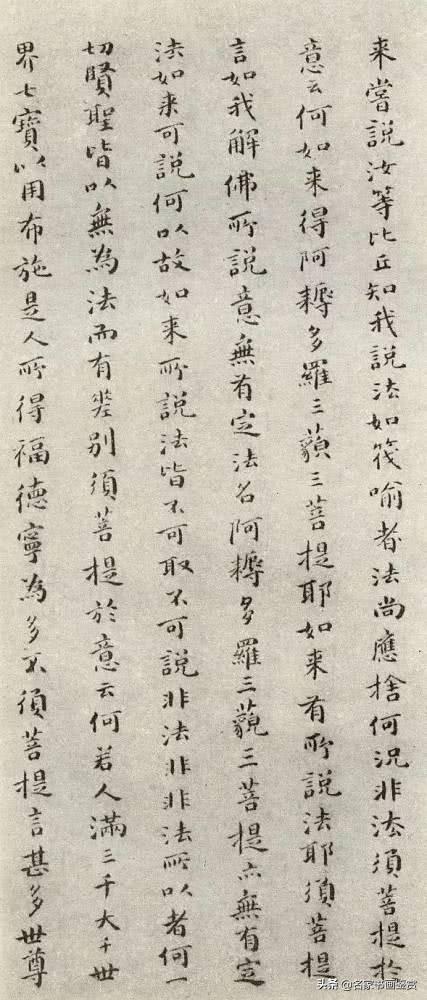 来嘗説汝等比丘知我説法如筏喻者法尚應捨何況非法須菩提於
意云何如来得阿耨多羅三藐三菩提耶如来有所説法耶須菩提
言如我解佛所説意無有定法名阿耨多羅三藐三菩提亦無有定
法如来可説何以故如来所説法皆不可取不可説非法非非法所以者何一
切賢聖皆以無為法而有差别須菩提於意云何若人滿三千大千世
界七寶以用布施是人所得福德寧為多不須菩提言甚多世尊
头条 @名家书画鉴赏